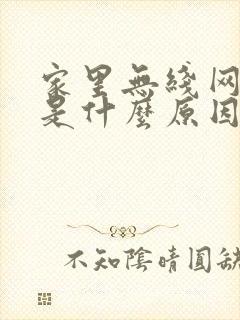 家里無綫网
是什麼原因
不知陰晴圓缺